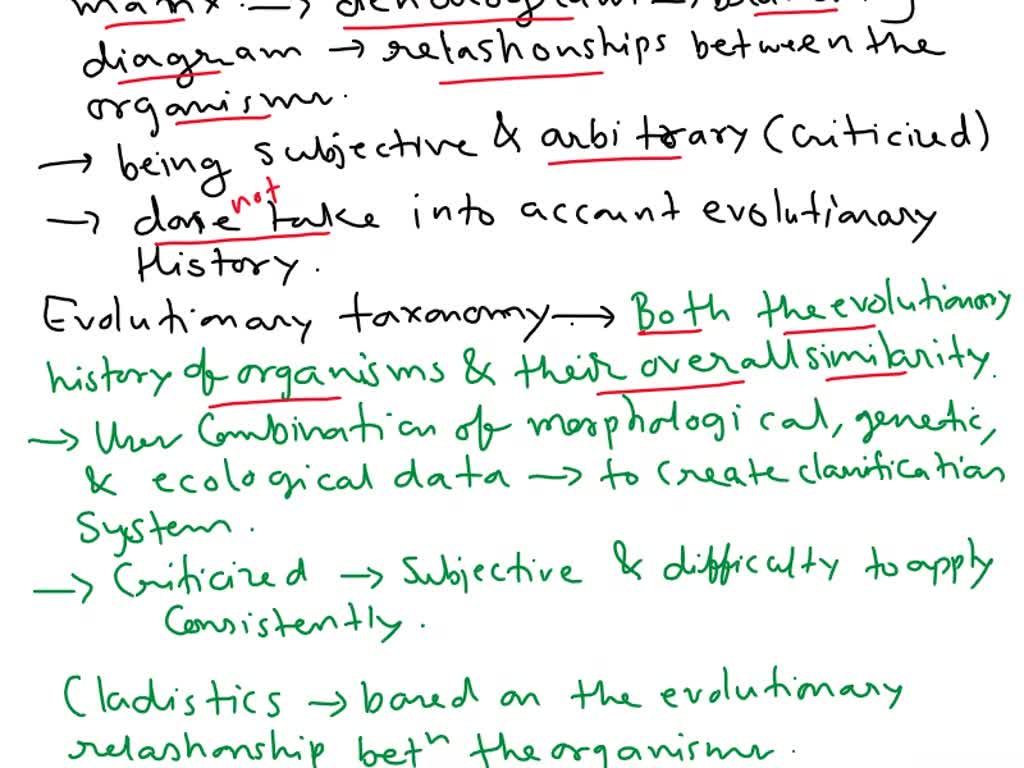 diagram → relashonships between the
organisms.
→ being subjective & arbitrary (Criticized)
→ dose not take into account evolutionary
History.
Evolutionary taxonomy → Both the evolutionary
history of organisms & their overall similarity.
→ Uses Combination of morphological, genetic,
& ecological data → to create classification
System.
→ Criticized → Subjective & difficulty to apply
Consistently.
Cladistics → based on the evolutionary
relashonship betn the organisms.